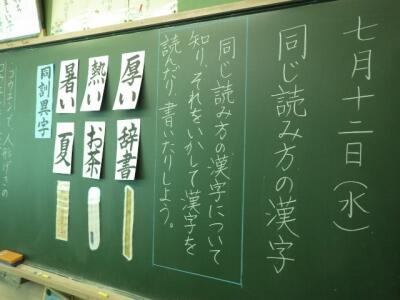 七月十二日(水)
同じ読み方の漢字
同じ読み方の漢字について
知り、それをいかして漢字を
読んだり、書いたりしよう。
厚い
辞書
熱い
お茶
暑い
夏
同訓異字